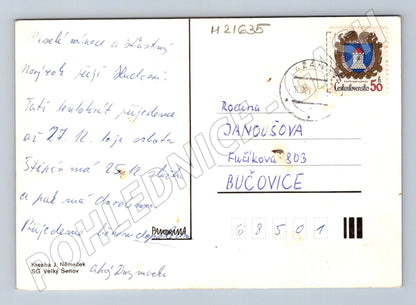 M21635
Veselé vánoce a šťastný
Nový rok přejí
Tatí tentokrát přijedeme
až 27.12. to je sobota
Štěpán má 25.12. službu
a pak má dovolenou.
Přijedeme
Kresba J. Němeček
SG Velký Šenov
Československo
50
Rodina
JANOUŠOVA
Fučíkova 803
BUČOVICE
68501
POHLEDNICE